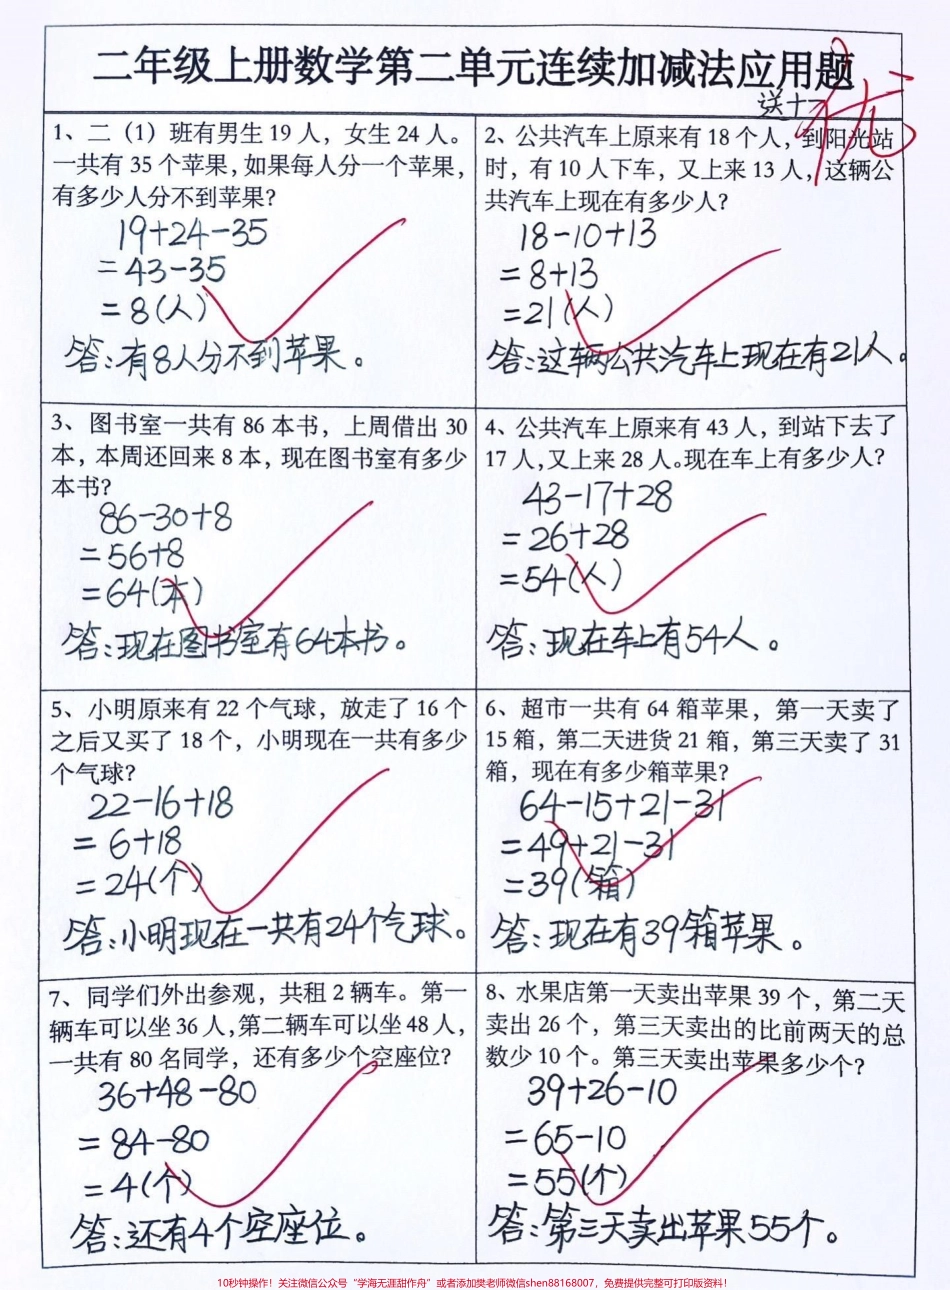 二年级上册数学第二单元连续加减法应用题
优
1、二（1）班有男生19人，女生24人。
一共有35个苹果，如果每人分一个苹果，
有多少人分不到苹果？
19+24-35
=43-35
=8(人)
答：有8人分不到苹果。
2、公共汽车上原来有18个人，到阳光站
时，有10人下车，又上来13人，这辆公
共汽车上现在有多少人？
18-10+13
=8+13
=21(人)
答：这辆公共汽车上现在有21人。
3、图书室一共有86本书，上周借出30
本，本周还回来8本，现在图书室有多少
本书？
86-30+8
=56+8
=64(本)
答：现在图书室有64本书。
4、公共汽车上原来有43人，到站下去了
17人，又上来28人。现在车上有多少人？
43-17+28
=26+28
=54(人)
答：现在车上有54人。
5、小明原来有22个气球，放走了16个
之后又买了18个，小明现在一共有多少
个气球？
22-16+18
=6+18
=24(个)
答：小明现在一共有24个气球。
6、超市一共有64箱苹果，第一天卖了
15箱，第二天进货21箱，第三天卖了31
箱，现在有多少箱苹果？
64-15+21-31
=49+21-31
=39(箱)
答：现在有39箱苹果。
7、同学们外出参观，共租2辆车。第一
辆车可以坐36人，第二辆车可以坐48人，
一共有80名同学，还有多少个空座位？
36+48-80
=84-80
=4(个)
答：还有4个空座位。
8、水果店第一天卖出苹果39个，第二天
卖出26个，第三天卖出的比前两天的总
数少10个。第三天卖出苹果多少个？
39+26-10
=65-10
=55(个)
答：第三天卖出苹果55个。
10秒钟操作！关注微信公众号“学海无涯甜作舟”或者添加樊老师微信shen88168007，免费提供完整可打印版资料！